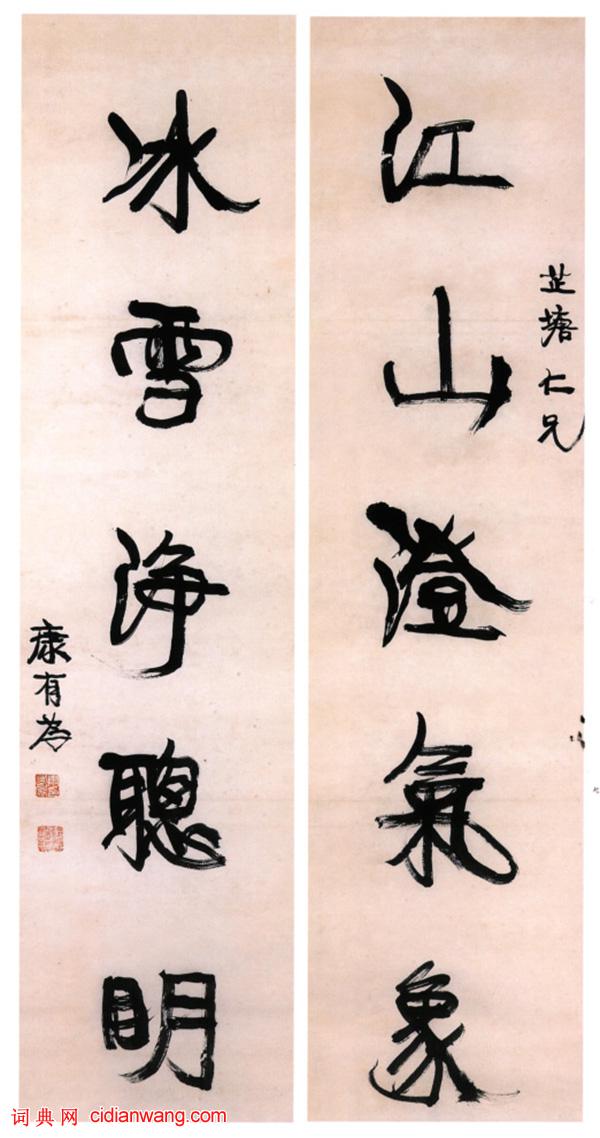 江山澄氣象
芷塘仁兄
冰雪淨聰明
康有為
词典网 cidianwang.com